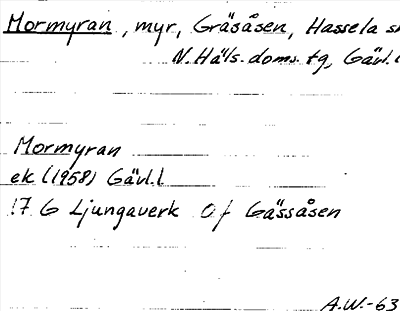 Mormyran, myr, Gräsåsen, Hassela
N. Häls. doms. tg, Gävl. l
Mormyran
ek (1958) Gävl. l
17 G Ljungaverk Of Gässåsen
A.W.-63